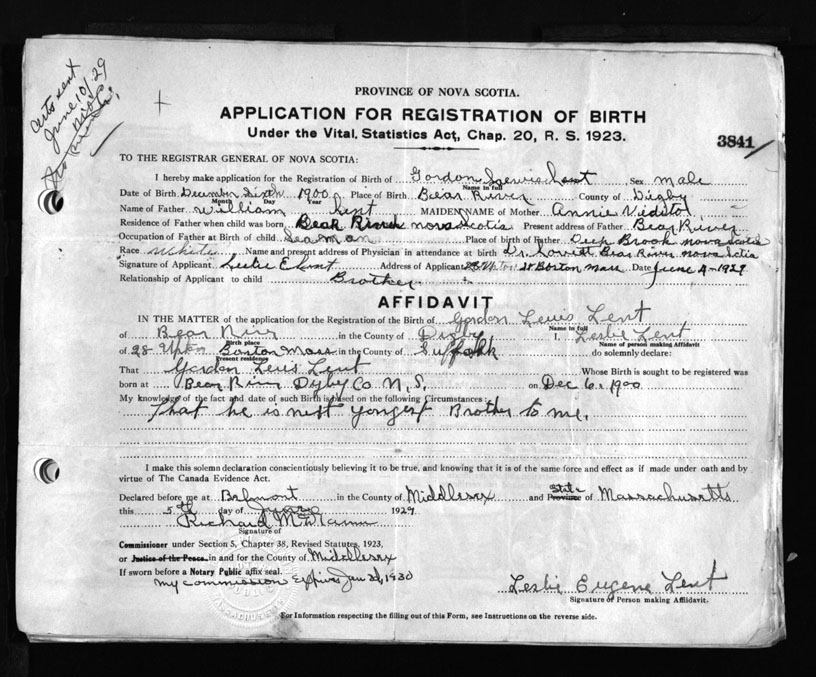 Certs sent
June 10/29
PROVINCE OF NOVA SCOTIA.
APPLICATION FOR REGISTRATION OF BIRTH
Under the Vital Statistics Act, Chap. 20, R. S. 1923.
3841
TO THE REGISTRAR GENERAL OF NOVA SCOTIA:
I hereby make application for the Registration of Birth of Gordon Lewis Lent Sex male
Name in full
Date of Birth December Sixth 1900 Place of Birth Bear River County of Digby
Month Day Year
Name of Father William Lent MAIDEN NAME of Mother Annie
Residence of Father when child was born Bear River nova Scotia Present address of Father Bear River
Occupation of Father at Birth of child Seaman Place of birth of Father Deep Brook nova Scotia
Race White Name and present address of Physician in attendance at birth Dr. Lovitt Bear River nova Sctia
Signature of Applicant Leslie E Lent Address of Applicant 28 St Boston Mass Date June 4 - 1929
Relationship of Applicant to child Brother
AFFIDAVIT
IN THE MATTER of the application for the Registration of the Birth of Gordon Lewis Lent
Name in full
of Bear River in the County of Digby I, Leslie Lent
Birth place Name of person making Affidavit
of 28 Boston Mass in the County of Suffolk do solemnly declare:
Present residence
That Gordon Lewis Lent Whose Birth is sought to be registered was
born at Bear River Dyby Co N. S. on Dec 6. 1900
My knowledge of the fact and date of such Birth is based on the following Circumstances:
That he is next yongest Brother to me.
I make this solemn declaration conscientiously believing it to be true, and knowing that it is of the same force and effect as if made under oath and by
virtue of The Canada Evidence Act.
Declared before me at Belmont in the County of Middlesex and State Province of Massachusetts
this 5th day of June 1929
Richard
Signature of
Commissioner under Section 5, Chapter 38, Revised Statutes, 1923,
or Justice of the Peace in and for the County of Middlesex
If sworn before a Notary Public affix seal.
my commission Expires Jan 1930
Leslie Eugene Lent
Signature of Person making Affidavit.
For Information respecting the filling out of this Form, see Instructions on the reverse side.